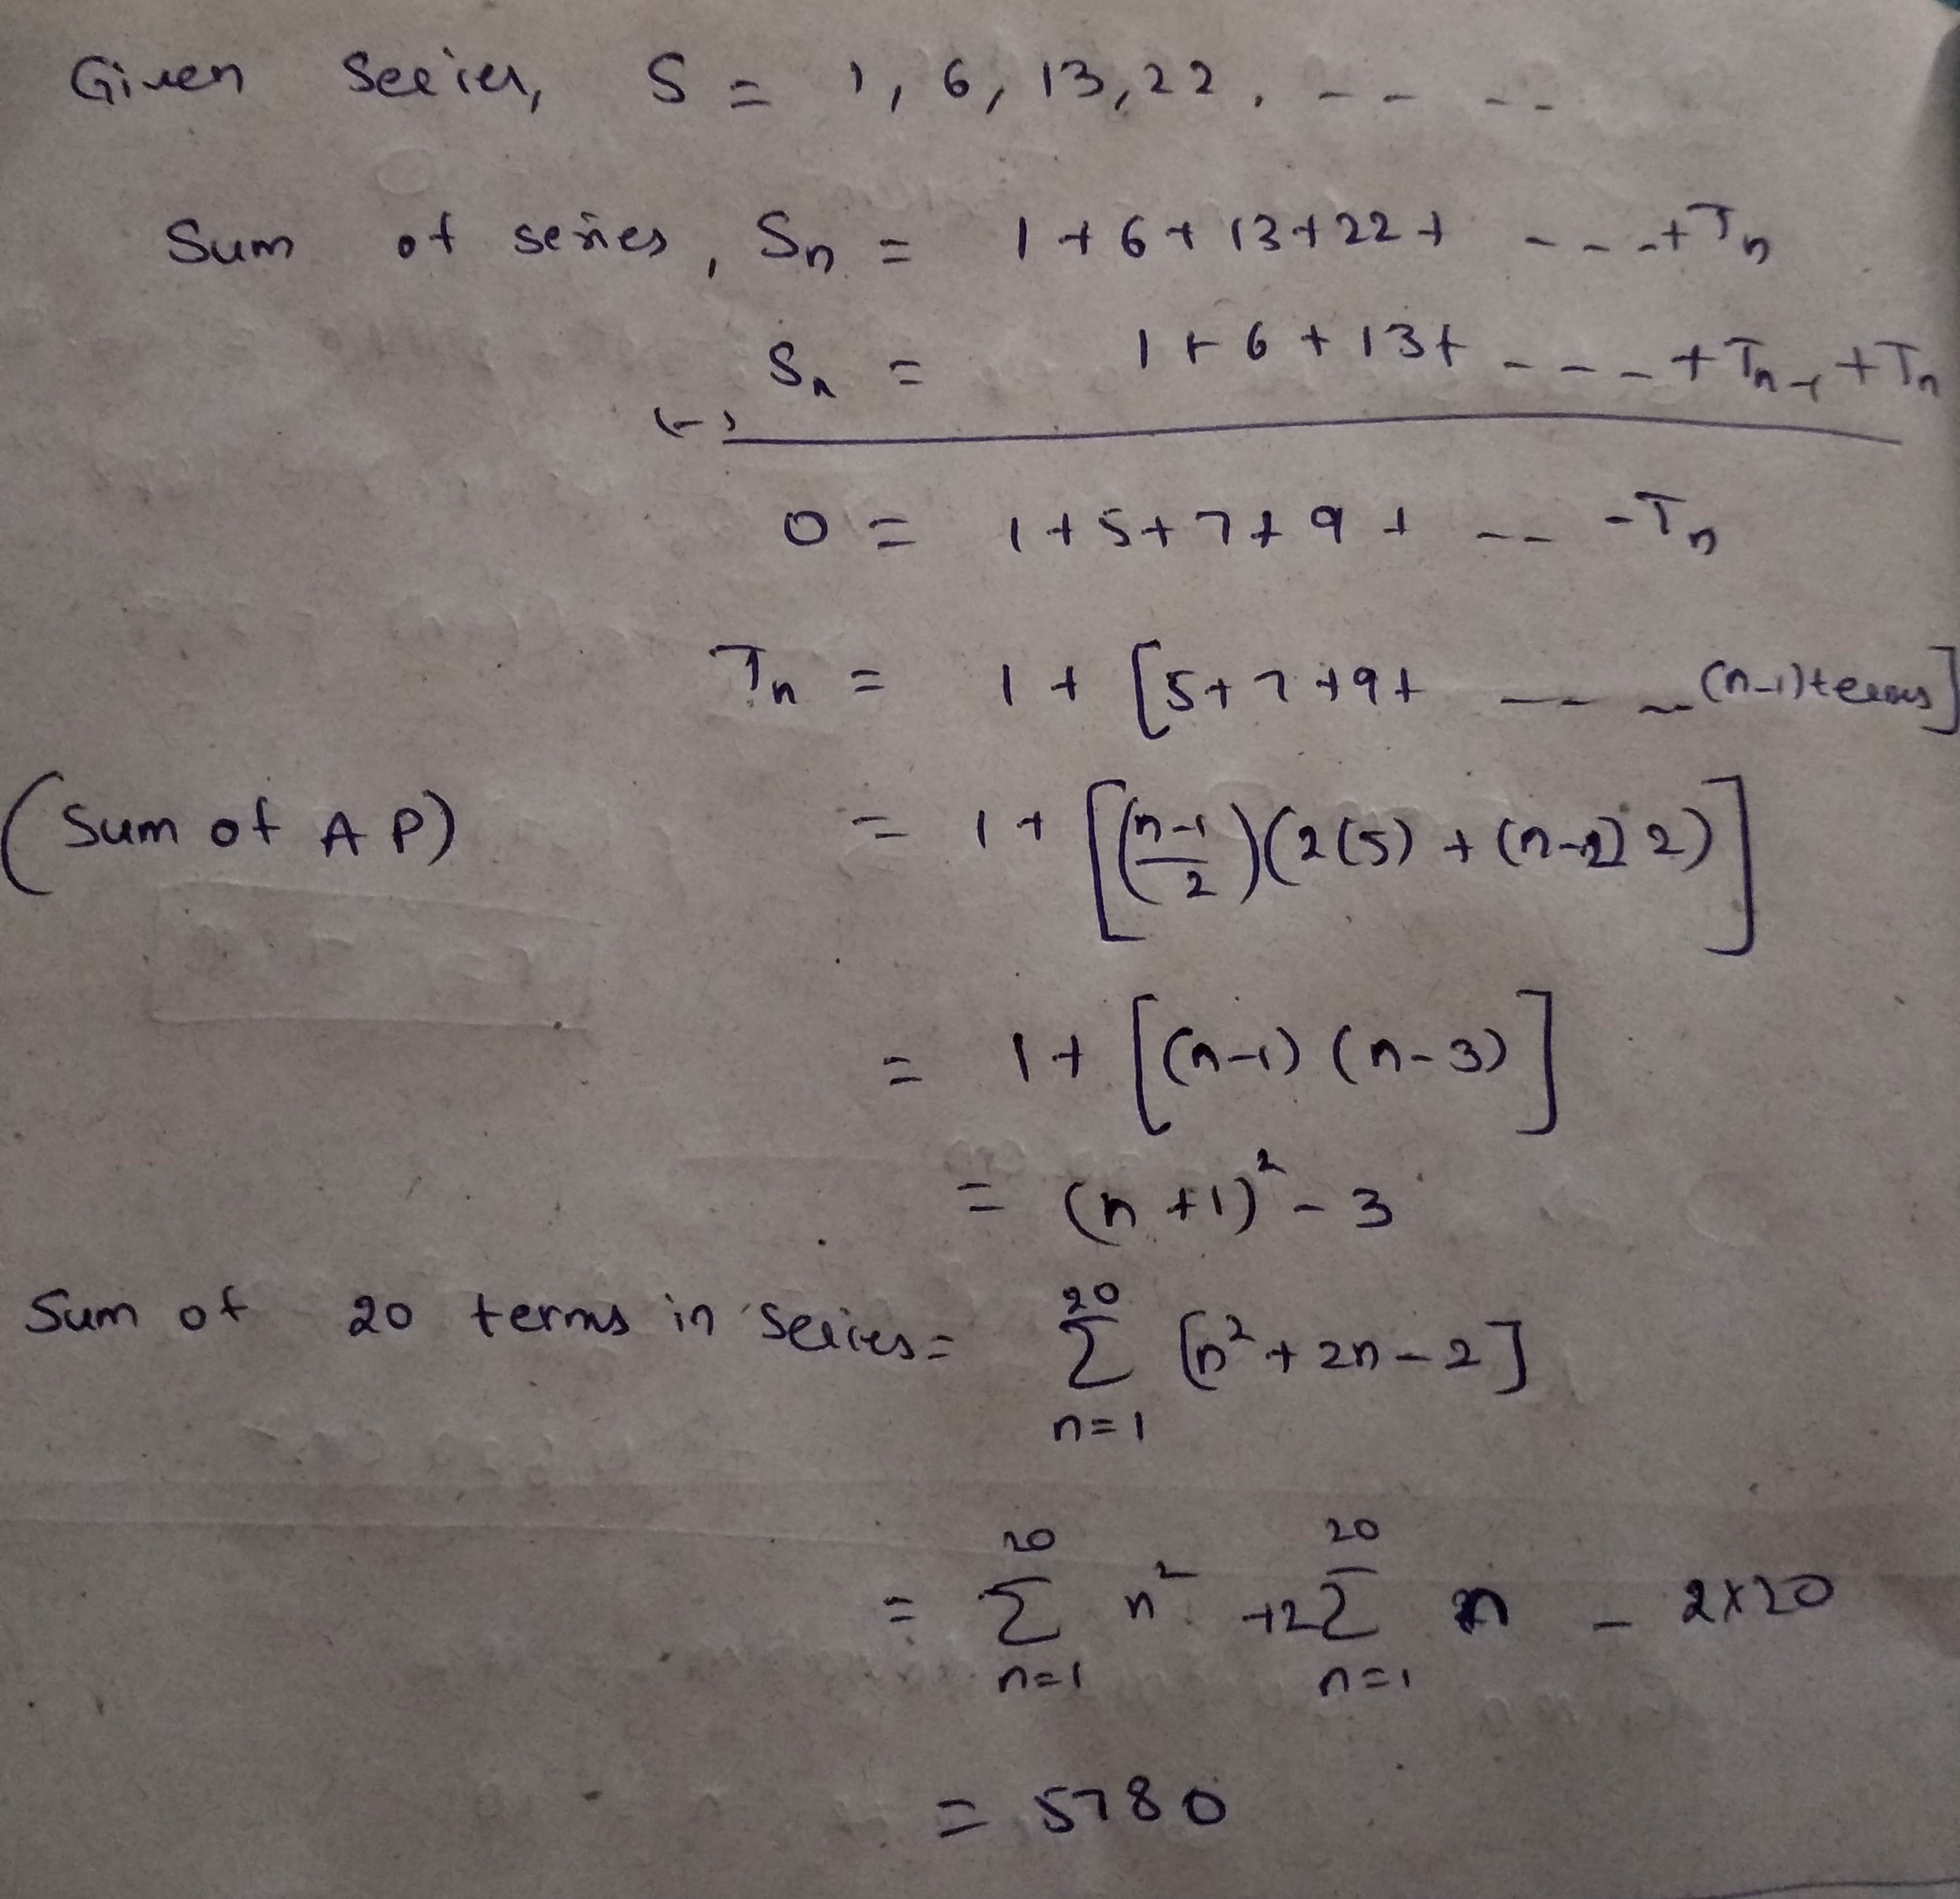 Given Series, S = 1, 6, 13, 22, - - - -
Sum of series, Sn = 1 + 6 + 13 + 22 + - - - + Tn
Sn = 1 + 6 + 13 + - - - + Tn-1 + Tn
(-)
0 = 1 + 5 + 7 + 9 + - - - Tn
Tn = 1 + [5 + 7 + 9 + - - - (n-1) terms]
(Sum of AP) = 1 + [((n-1)/2)(2(5) + (n-2)2)]
= 1 + [(n-1)(n-3)]
= (n+1)² - 3
Sum of 20 terms in series = ∑_{n=1}^{20} [n² + 2n - 2]
= ∑_{n=1}^{20} n² + 2∑_{n=1}^{20} n - 2×20
= 5780